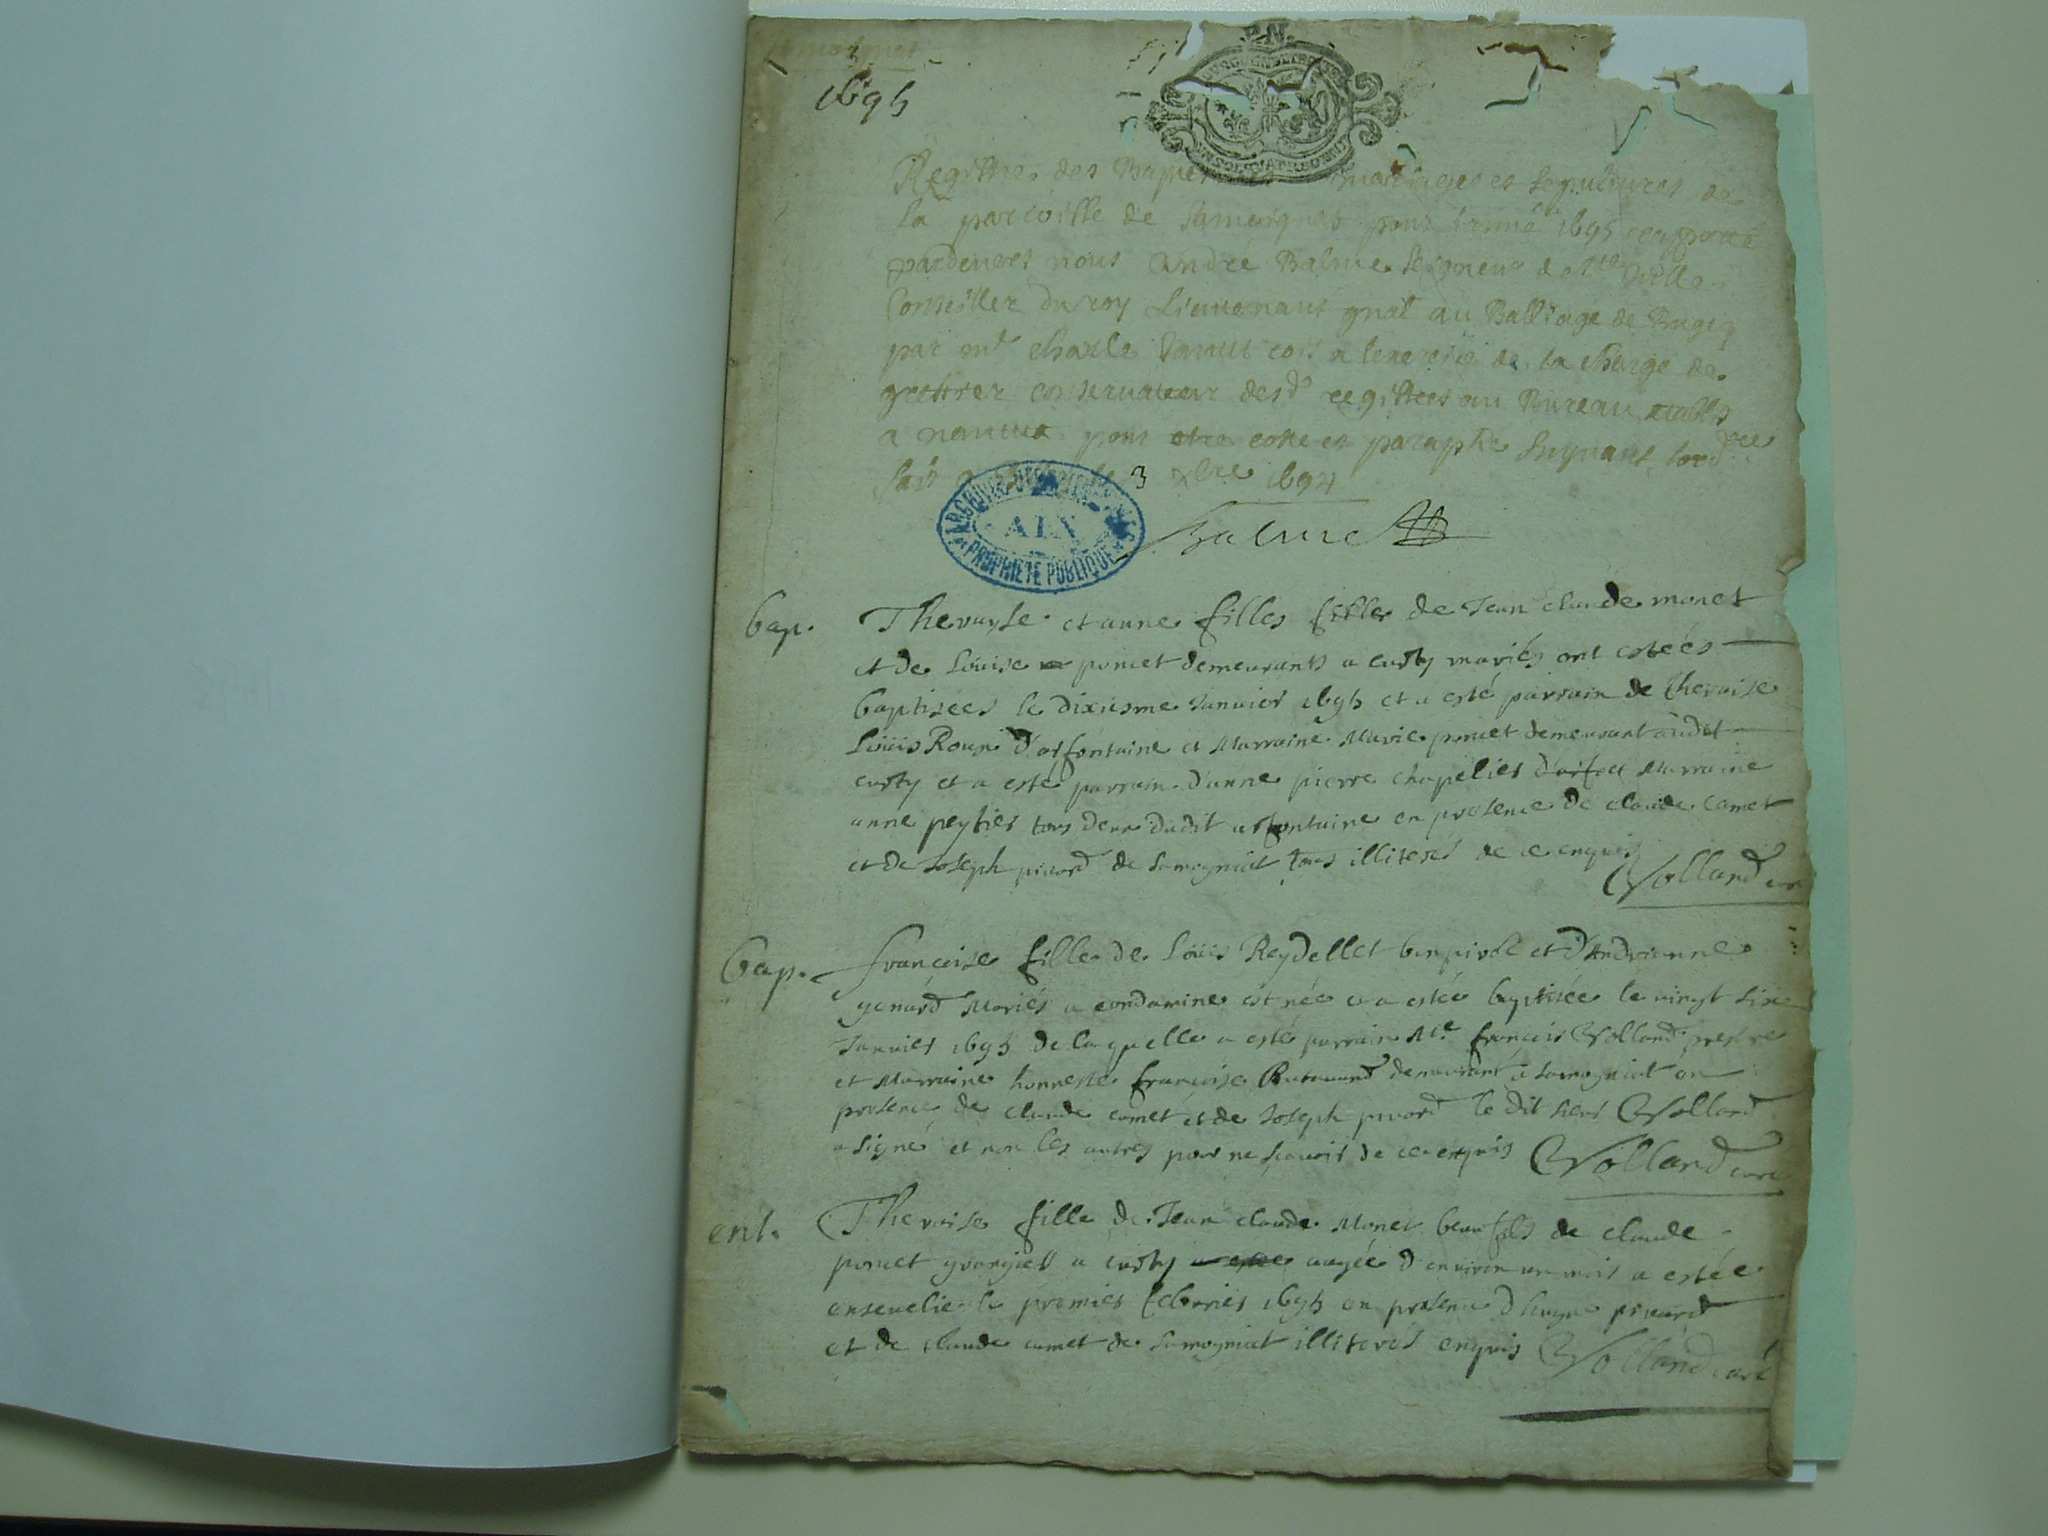 1695
Registre des Baptesmes mariages et sepultures de
la parroisse de Samoignat pour lanné 1695 raporté
pardevers nous André Balme Seigneur de Ste
Conseiller du roy Lieutenant gnal au Balliage de Bugey
par mr charle commis a lexercise de la charge de
greffier conservateur desd registres au Bureau establi
a nantua pour estre cotté et paraphé suyvant lordce
fait 3 xbre 1694
Balme
ARCHIVES DE L'AIN
PROPRIÉTÉ PUBLIQUE
bap. Thevayse et anne filles fille de Jean claude monet
et de Louise poncet demeurants a curty mariés ont estées
baptisées le dixiesme Janvier 1695 et a esté parrain de thevaise
Loüis d'arfontaine et Marraine Marie poncet demeurant audit
curty et a esté parrain d'anne pierre chapelier Marraine
anne peytier tous deux dudit arfontaine en presence de claude comet
et de Joseph picard de Samogniat tous illiterés de ce enquis
Volland curé
bap. francoise fille de Loüis Reydellet et d'Andrienne
genard Mariés a condamine est née et a estée baptisée le vingt six
Janvier 1695 de laquelle a esté parrain Mre françois Volland prestre
et Marraine honneste francoise demeurant a Samogniat en
presence de claude comet et de Joseph picard le dit sieur Volland
a signé et non les autres pour ne sçavoir de ce enquis Volland curé
ent. Thevaise fille de Jean claude Monet beau fils de claude
poncet grangier a curty aagée d'environ un mois a estée
ensevelie le premier febvrier 1695 en presence d'huge picard
et de claude comet de Samogniat illiterés enquis Volland curé